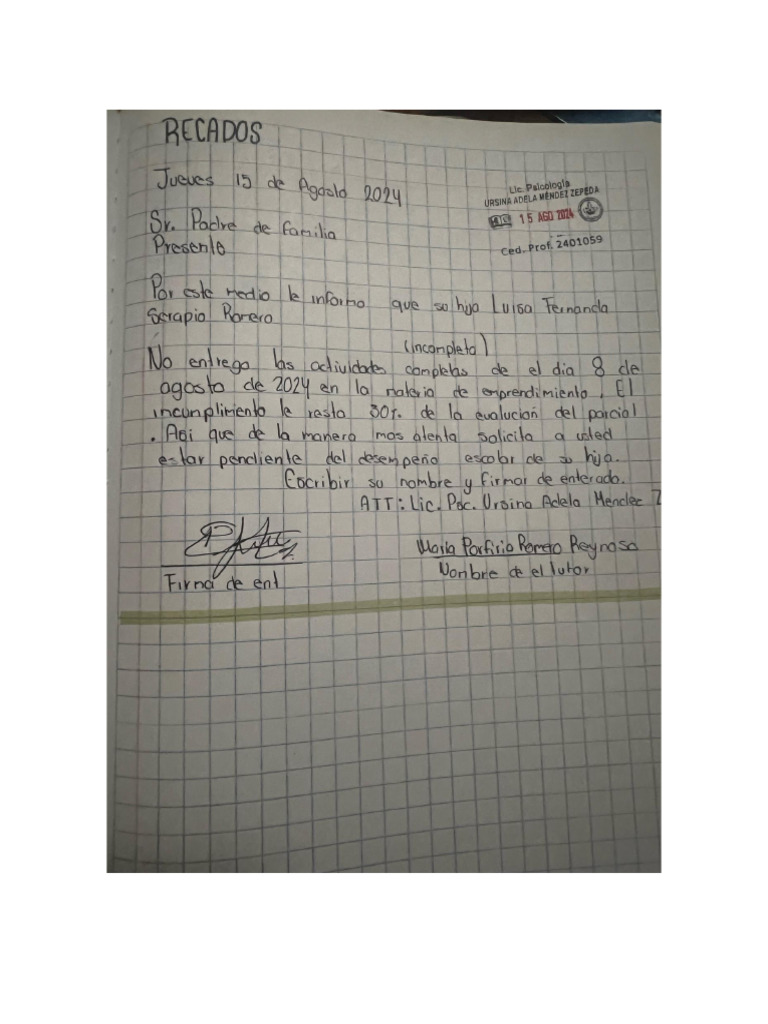 RECADOS
Jueves 15 de Agosto 2024
Lic. Psicología
URSINA ADELA MÉNDEZ ZEPEDA
15 AGO 2024
Ced. Prof. 2401059
Sr. Padre de familia
Presente
Por este medio le informo que su hija Luisa Fernanda
Serapio Romero
(incompleta)
No entrego las actividades completas de el dia 8 de
agosto de 2024 en la materia de emprendimiento. El
incumplimiento le resta de la evalucion del parcial
. Asi que de la manera mas atenta solicita a usted
estar pendiente del desempeño escolar de su hija.
Escribir su nombre y firmar de enterado.
ATT: Lic. Psc. Ursina Adela Mendec Z
Maria Porfiria Romero Reynoso
Firma de ent
Nombre de el tutor